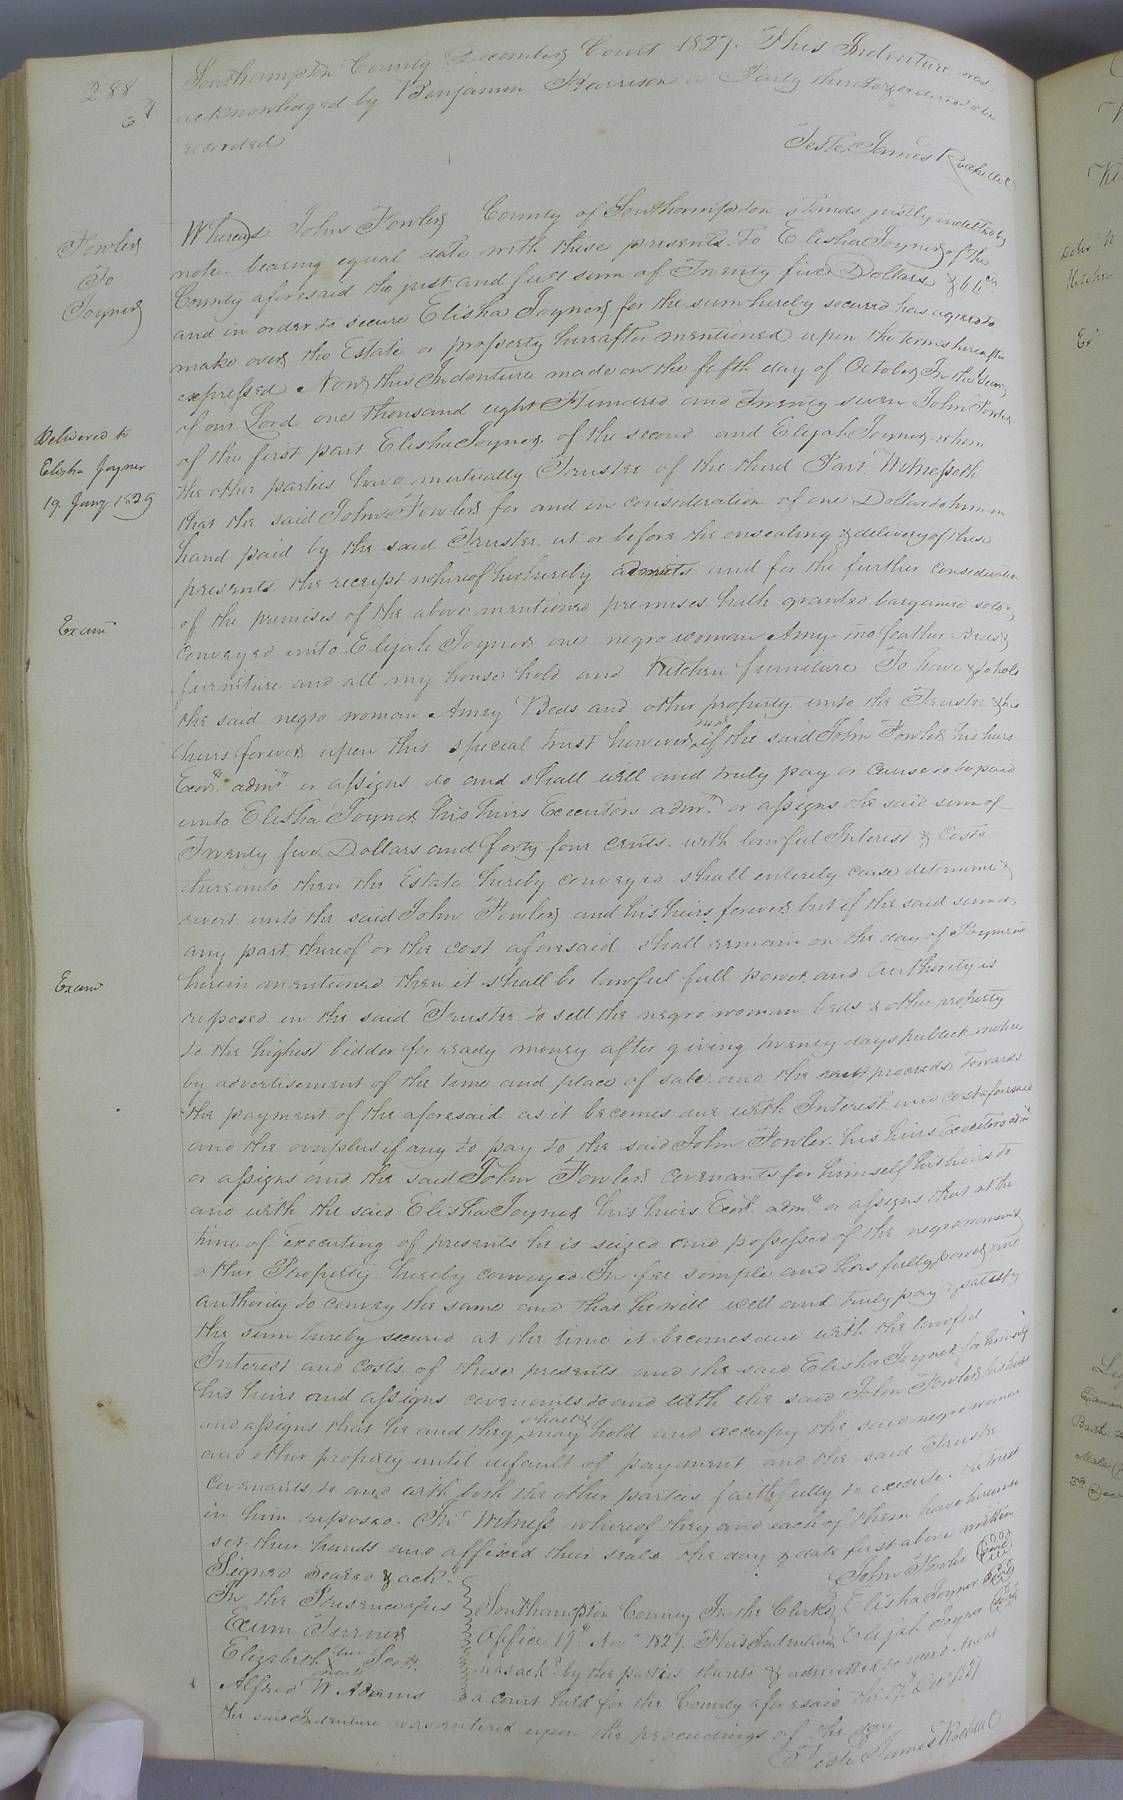 288
Ed
Southampton County December Court 1827. This Indenture was
acknowledged by Benjamin Harrison a Party thereto & ordered to be
recorded
Teste James Rochelle C
Fowler
To
Joyner
Delivered to
Elisha Joyner
19 Jany 1829
Exam
Exam
Whereas John Fowler County of Southampton stands justly indebted by
note bearing equal date with these presents to Elisha Joyner of the
County aforesaid the just and full sum of Twenty five Dollars &
and in order to secure Elisha Joyner for the sum hereby secured has agreed to
make over the Estate or property hereafter mentioned upon the terms hereafter
expressed Now this Indenture made on the fifth day of October In the Year
of our Lord one thousand eight Hundred and Twenty seven John Fowler
of the first part Elisha Joyner of the second and Elijah Joyner whom
the other parties have mutually Trustee of the third Part Witnesseth
that the said John Fowler for and in consideration of one Dollar to him in
hand paid by the said Trustee at or before the ensealing & delivery of these
presents the receipt whereof he hereby admits and for the further consideration
of the premises of the above mentioned premises hath granted bargained sold &
conveyed unto Elijah Joyner one negro woman Amy two feather Beds &
furniture and all my house hold and Kitchen furniture To have & to hold
the said negro woman Amey Beds and other property unto the Trustee & his
heirs forever upon this special trust however that if the said John Fowler his heirs
Exors admrs or assigns do and shall will and truly pay or cause to be paid
unto Elisha Joyner his heirs Executors admrs or assigns the said sum of
Twenty five Dollars and forty four cents with lawful Interest & Costs
thereunto then the Estate hereby conveyed shall entirely cease determine &
revert unto the said John Fowler and his heirs forever but if the said sum or
any part thereof or the cost aforesaid shall remain on the day of Payment
herein mentioned then it shall be lawful full power and authority is
reposed in the said Trustee to sell the negro woman beds & other property
to the highest bidder for ready money after giving twenty days publick notice
by advertisement of the time and place of sale and the proceeds towards
the payment of the aforesaid as it becomes due with Interest and cost aforesaid
and the overplus if any to pay to the said John Fowler his heirs Executors admrs
or assigns and the said John Fowler covenants for himself his heirs to
and with the said Elisha Joyner his heirs Exors admrs or assigns that at the
time of executing of presents he is seized and possessed of the negro woman &
other Property hereby conveyed In fee simple and has full power and
authority to convey the same and that he will well and truly pay & satisfy
the sum hereby secured at the time it becomes due with the lawful
Interest and costs of these presents and the said Elisha Joyner for himself
his heirs and assigns covenants to and with the said John Fowler his heirs
and assigns that he and they shall & may hold and occupy the said negro woman
and other property until default of payment and the said Trustee
covenants to and with both the other parties faithfully to execute the trust
in him reposed. In Witness whereof they and each of them have hereunto
set their hands and affixed their seals the day & date first above written
Signed Sealed & ackd
In the Presence of us
Exum Turner
Elizabeth her mark Scott
Alfred W. Adams
John Fowler seal
Elisha Joyner seal
Elijah Joyner seal
Southampton County In the Clerks
Office 19th Novr 1827. This Indenture
was ackd by the parties thereto & admitted to record And at
a court held for the County aforesaid the 17th Decr 1827
the said Indenture was entered upon the proceedings of the day
Teste James Rochelle C